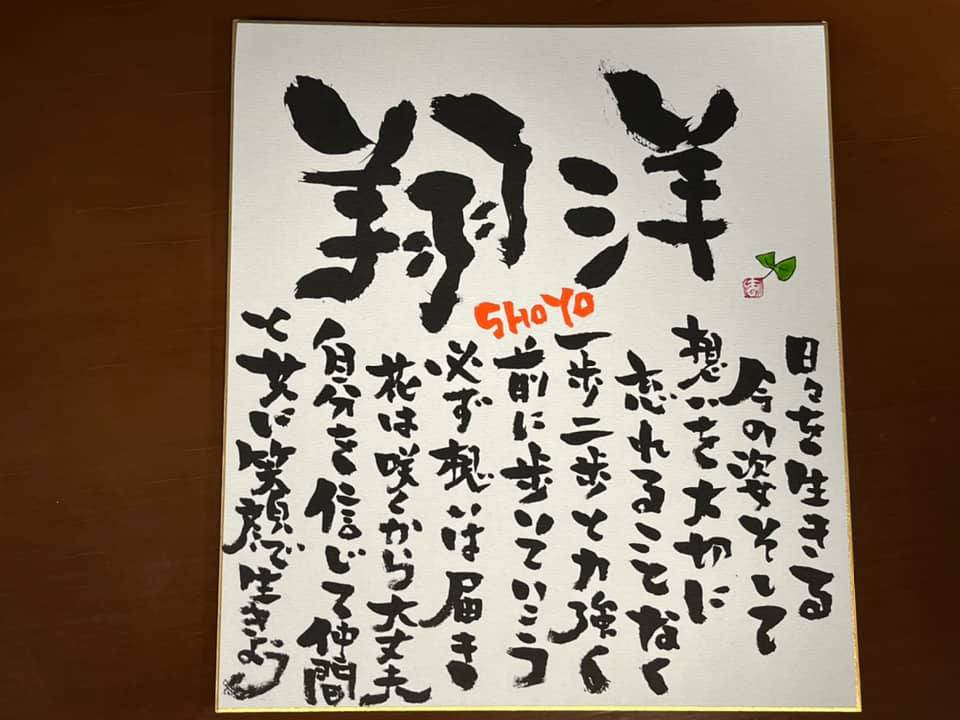 翔洋
SHOYO
日々を生きる
今の姿そして
想いを大切に
忘れることなく
一歩二歩と力強く
前に歩いていこう
必ず想いは届き
花は咲くから大丈夫
自分を信じて仲間
と共に笑顔で生きよう